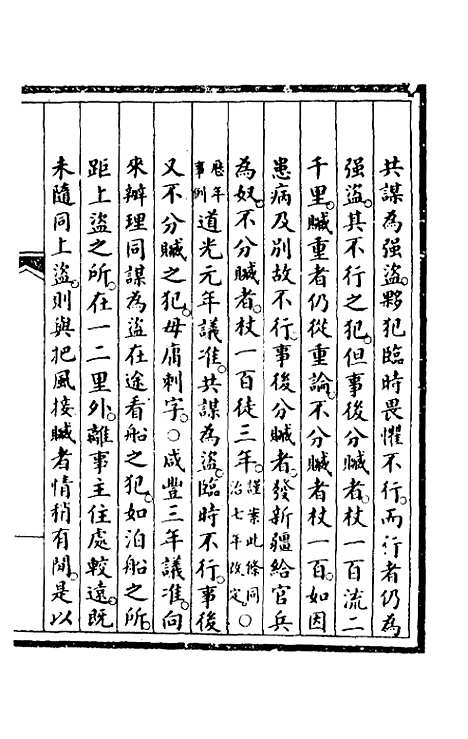 共謀為强盜夥犯臨時畏懼不行而行者仍為
强盜其不行之犯但事後分贓者杖一百流二
千里贓重者仍從重論不分贓者杖一百如因
患病及別故不行事後分贓者發新疆給官兵
為奴不分贓者杖一百徒三年謹案此條同治七年改定○
歷年事例道光元年議准共謀為盜臨時不行事後
又不分贓之犯毋庸刺字○咸豐三年議准向
來辦理同謀為盜在途看船之犯如泊船之所
距上盜之所在一二里外離事主住處較遠既
未隨同上盜則與把風接贓者情稍有閒是以